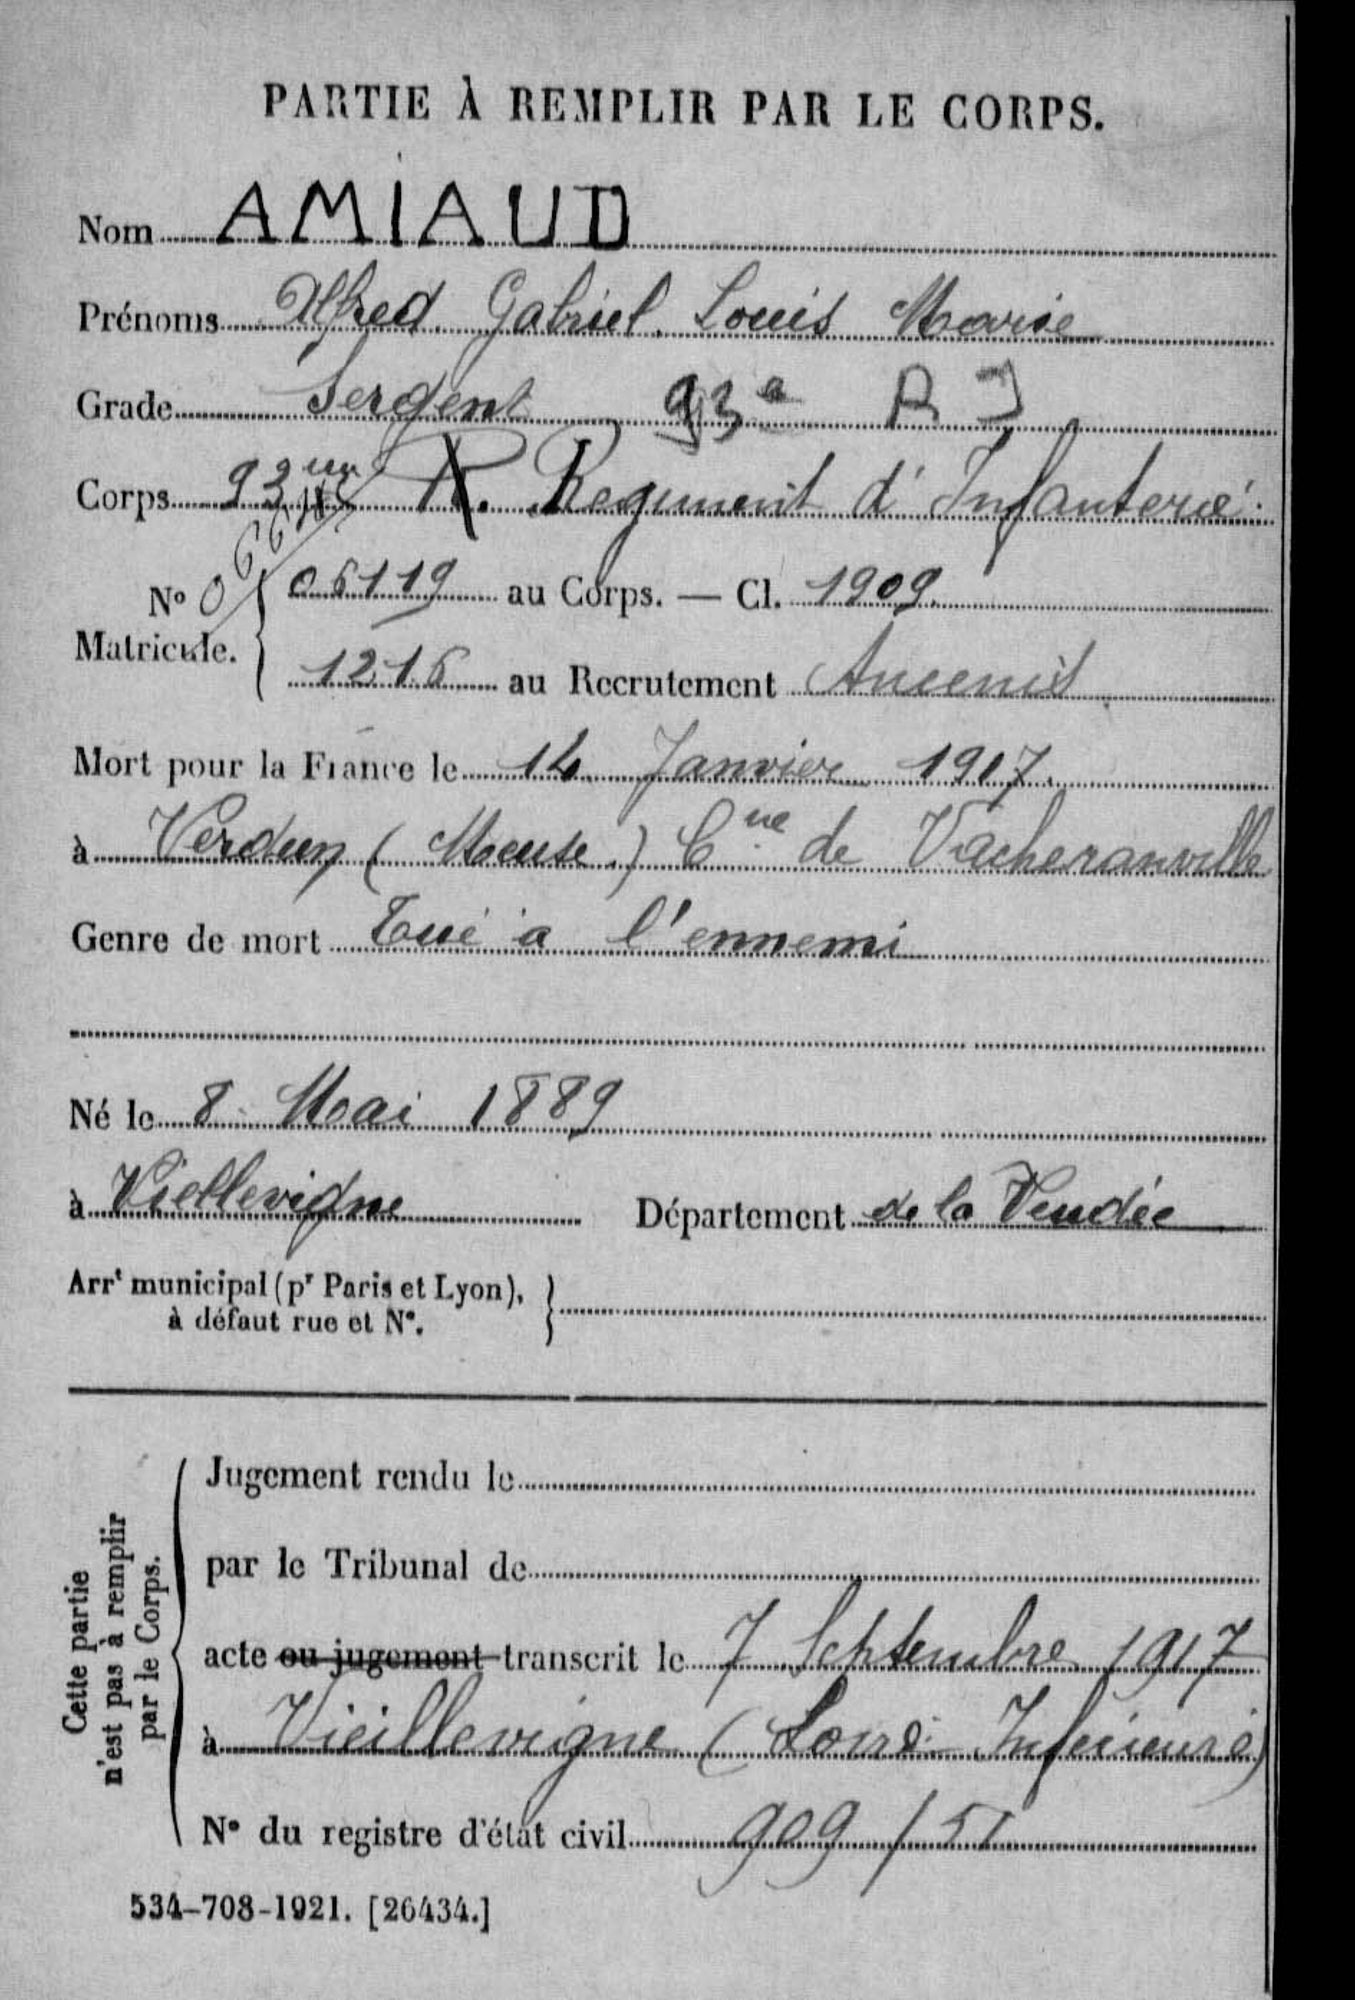 PARTIE À REMPLIR PAR LE CORPS.
Nom AMIAUD
Prénoms Alfred Gabriel Louis Marie
Grade Sergent 93e R I
Corps 93ème R. Regiment d'Infanterie
No Matricule. 05119 au Corps. — Cl. 1909
1216 au Recrutement Ancenis
Mort pour la France le 14 Janvier 1917
à Verdun (Meuse) Cne de Vacheranville
Genre de mort Tué à l'ennemi
Né le 8 Mai 1889
à Viellevigne Département de la Vendée
Arrt municipal (pr Paris et Lyon),
à défaut rue et N°.
Cette partie
n'est pas à remplir
par le Corps.
Jugement rendu le
par le Tribunal de
acte ou jugement transcrit le 7 Septembre 1917
à Vieillevigne (Loire Inférieure)
N° du registre d'état civil 909/51
534-708-1921. [26434.]